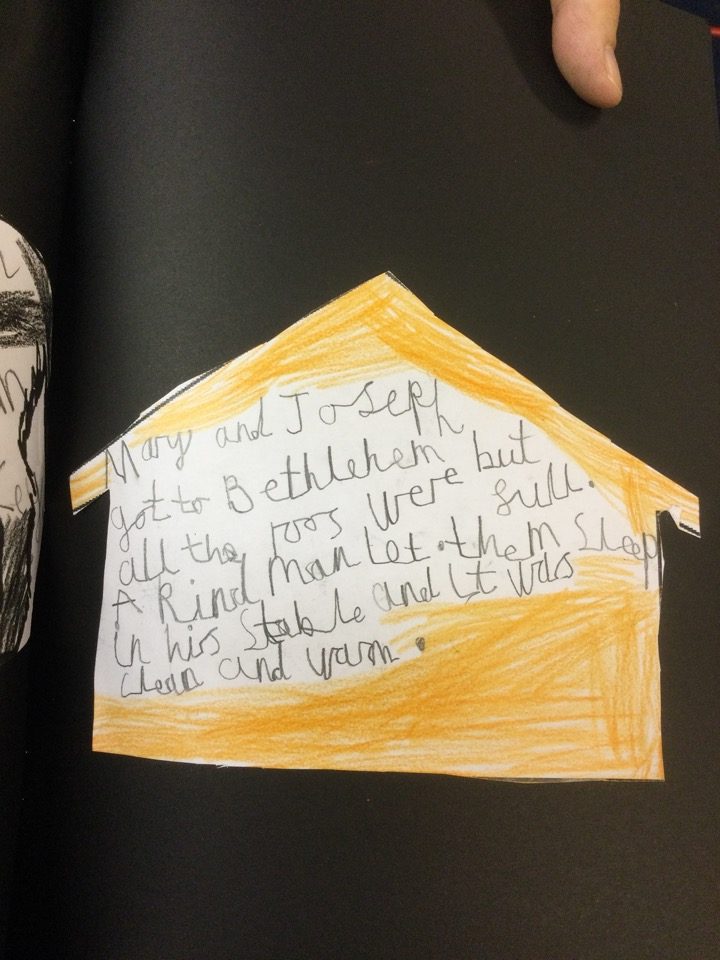 Mary and Joseph
got to Bethlehem
all the roos were but
full.
A Kind man let them Sleep
in his Stable and it was
clean and warm.